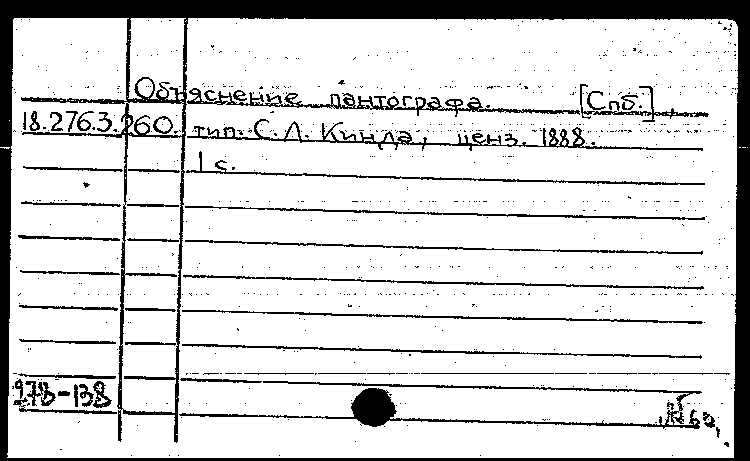 Объяснение пантографа. [Спб.],
18.276.3.260. тип. С. Л. Кинда, ценз. 1888.
1 с.
278-138